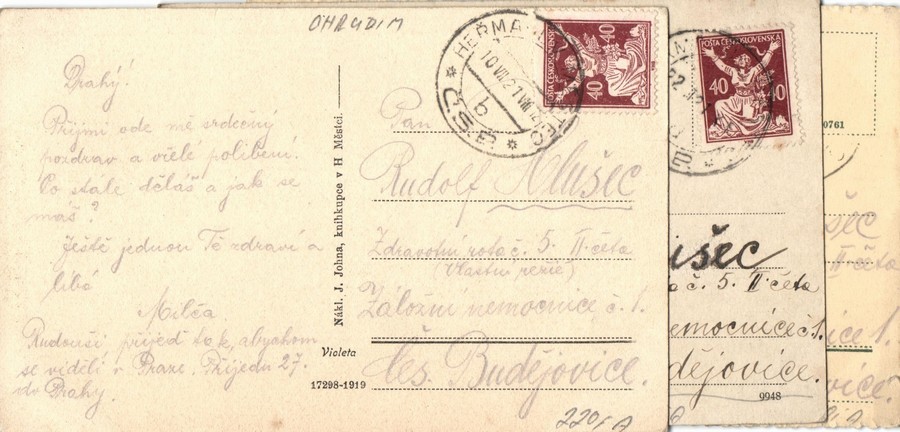 OHRUDIM
Drahý!
Přijmi ode mě srdečný
pozdrav a vřelé políbení.
Co stále děláš a jak se
máš?
Ještě jednou Tě zdraví a
líbá
Milča
Rudouši přijeď tak, abychom
se viděli v Praze. Přijedu 27.
do Prahy.
Nákl. J. Johna, knihkupce v H Městci.
Violeta
17298-1919
HEŘMA
10 VII 21
b
ČSR
40 POŠTA ČESKOSLOVENSKÁ 40
Pan
Rudolf Hlušec
Zdravotní rotač. 5. II četa
(Vlastní režie)
Záložní nemocnice č. 1.
Čes. Budějovice.
POŠTA ČESKOSLOVENSKÁ
40 40
išec
č. 5. II četa
nemocnice č 1.
dějovice.
9948
0761
šec
II četa
ice 1.
vice